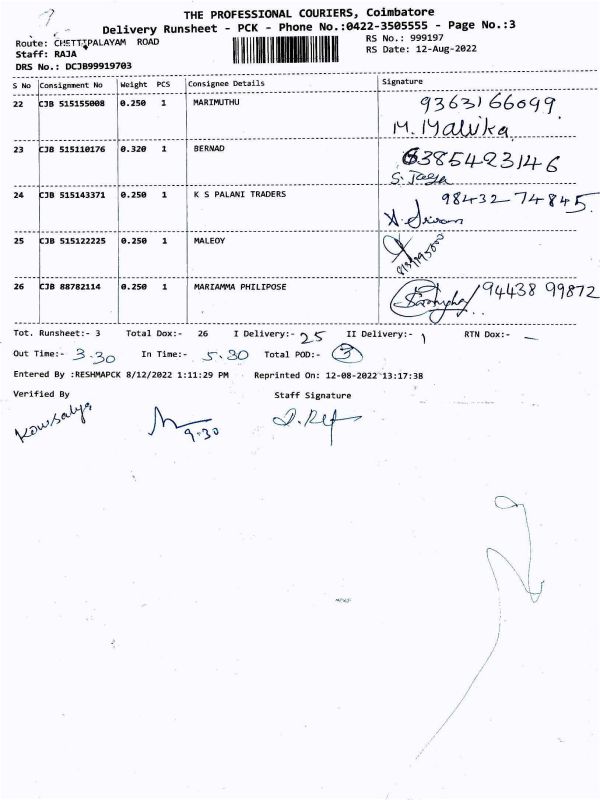 THE PROFESSIONAL COURIERS, Coimbatore
Delivery Runsheet - PCK - Phone No.:0422-3505555 - Page No.:3
Route: CHETTIPALAYAM ROAD
RS No.: 999197
Staff: RAJA
RS Date: 12-Aug-2022
DRS No.: DCJB99919703
S No Consignment No Weight PCS Consignee Details Signature
22 CJB 515155008 0.250 1 MARIMUTHU 9363166099
M. Malvika
23 CJB 515110176 0.320 1 BERNAD 6385423146
24 CJB 515143371 0.250 1 K S PALANI TRADERS 98432 74845
25 CJB 515122225 0.250 1 MALEOY
26 CJB 88782114 0.250 1 MARIAMMA PHILIPOSE 94438 99872
Tot. Runsheet:- 3 Total Dox:- 26 I Delivery:- 25 II Delivery:- 1 RTN Dox:- -
Out Time:- 3.30 In Time:- 5.30 Total POD:- 3
Entered By :RESHMAPCK 8/12/2022 1:11:29 PM Reprinted On: 12-08-2022 13:17:38
Verified By Staff Signature
Kowsalya
9.30